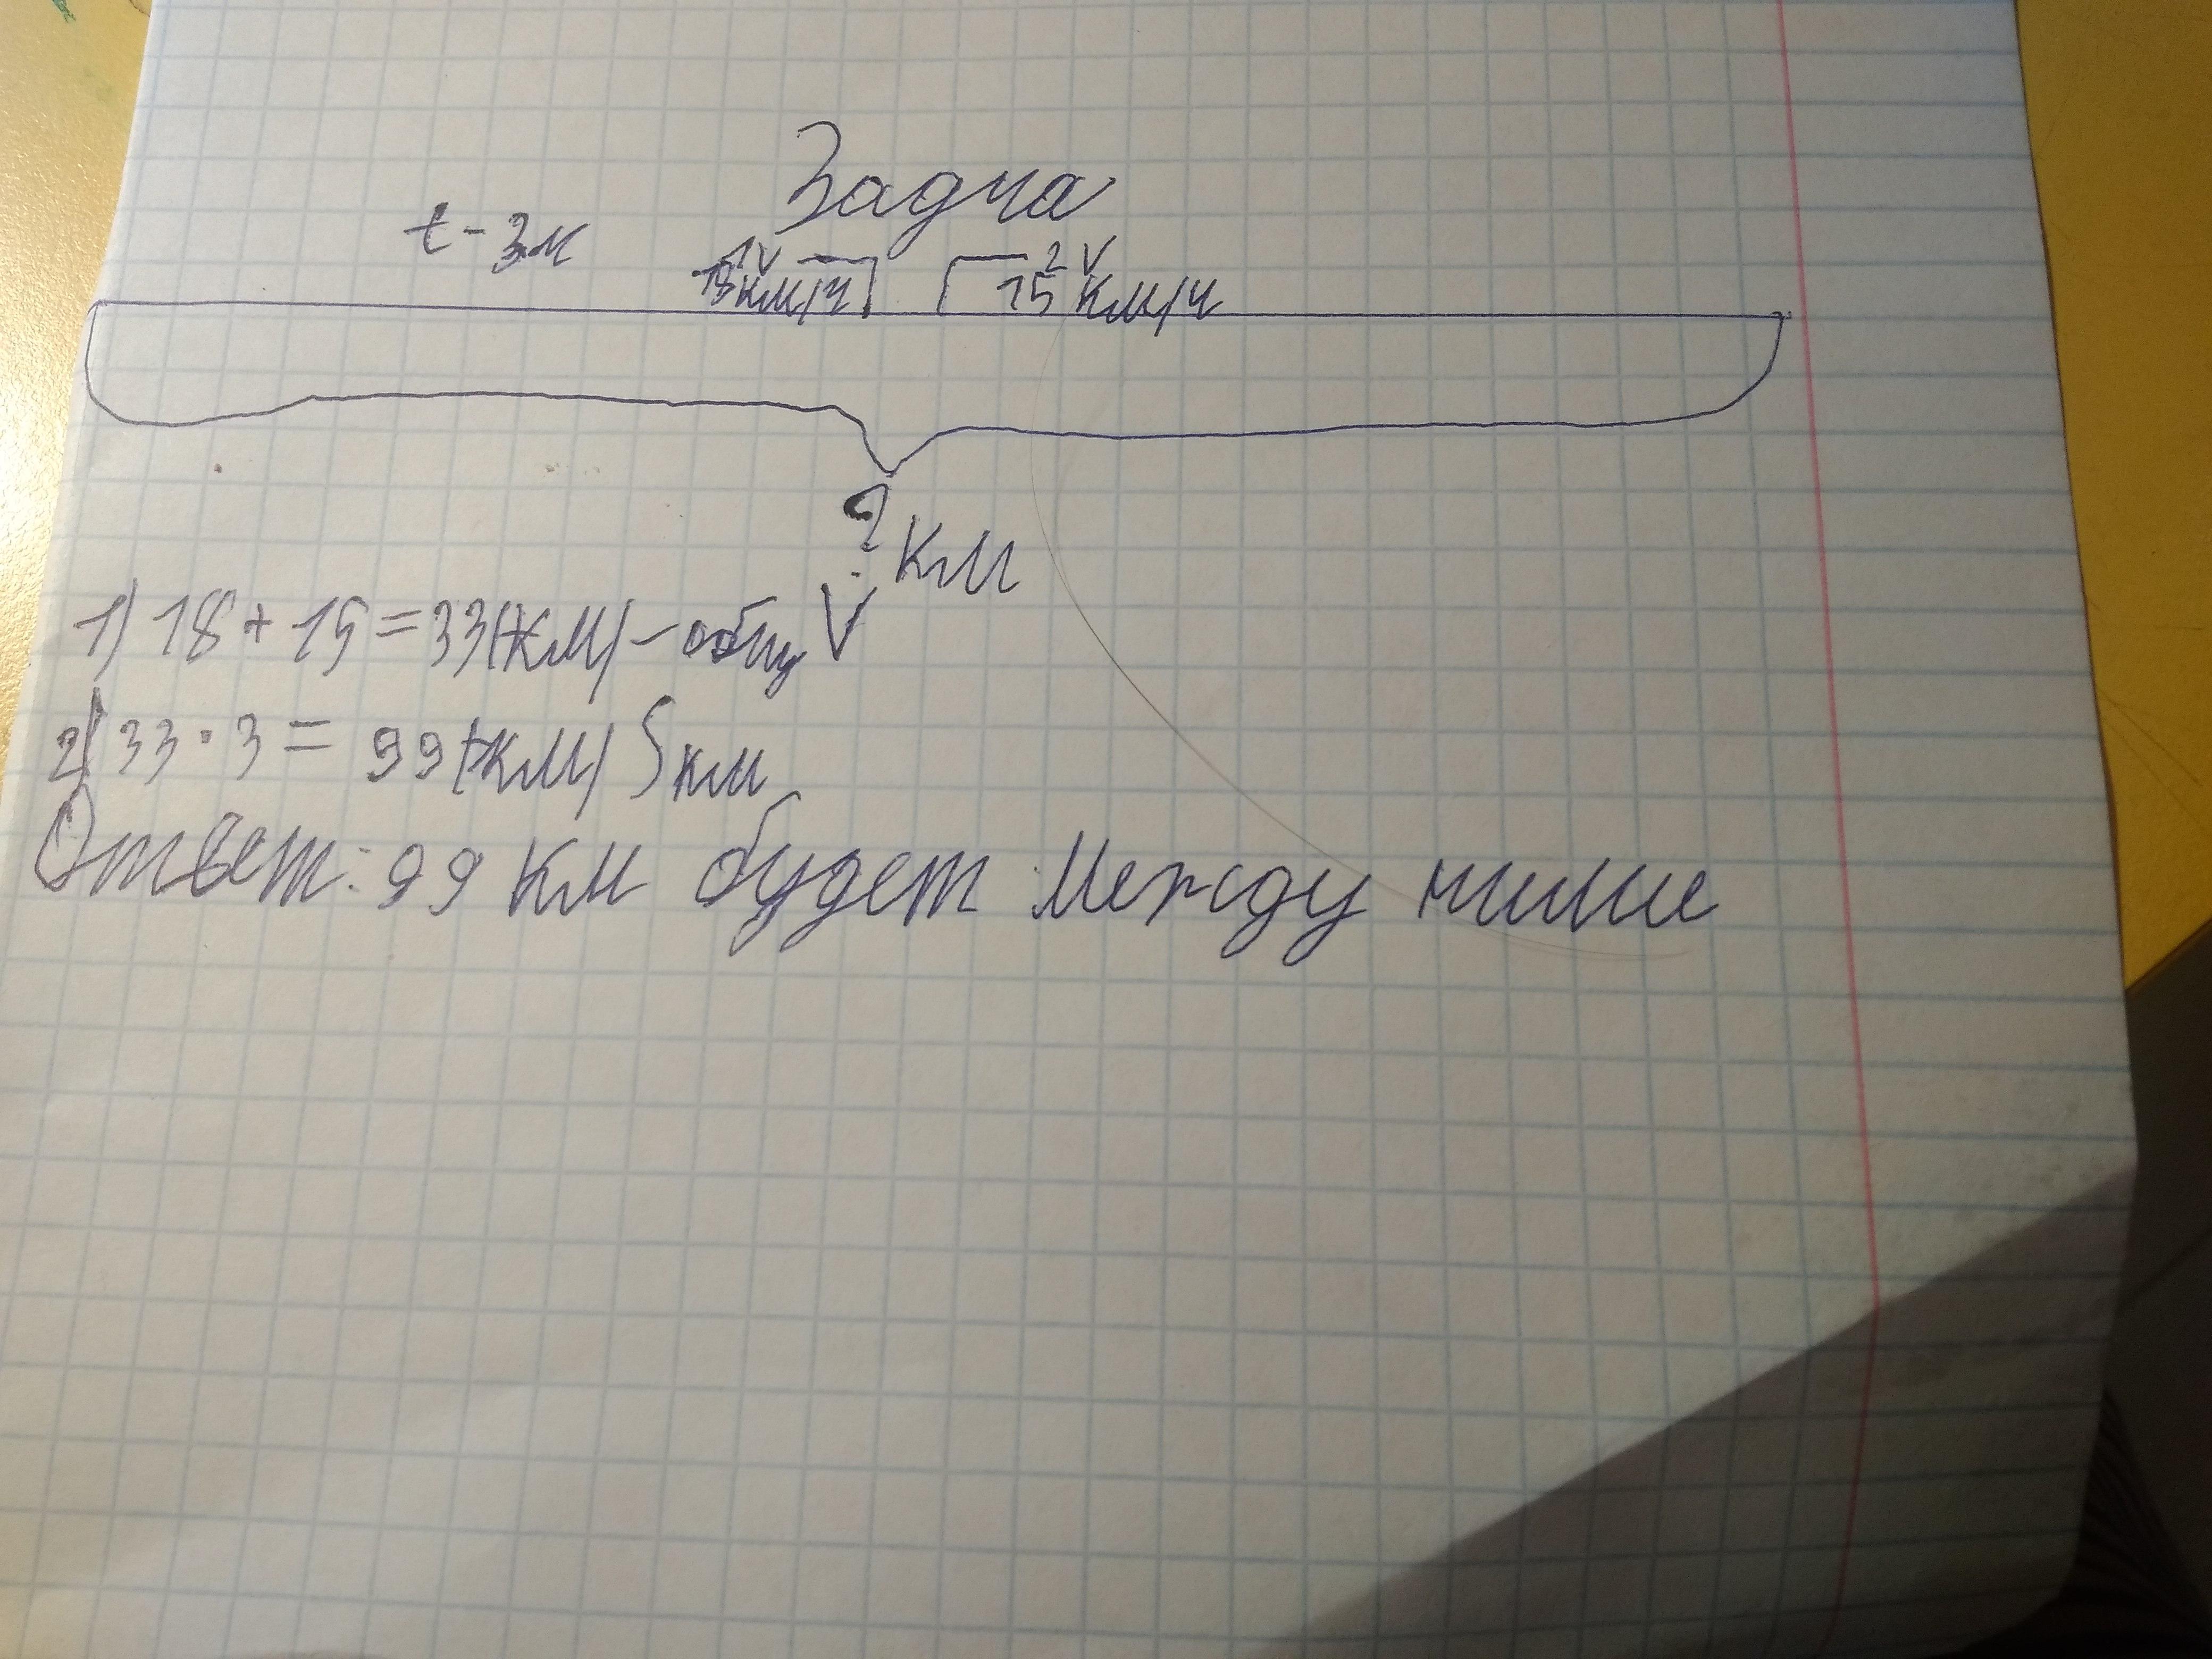 Задча
t - 3ч
1V 2V
18км/ч 15 км/ч
? км
1) 18 + 15 = 33(км) - общ V
2) 33 · 3 = 99(км) S км
Ответ: 99 км будет между ними